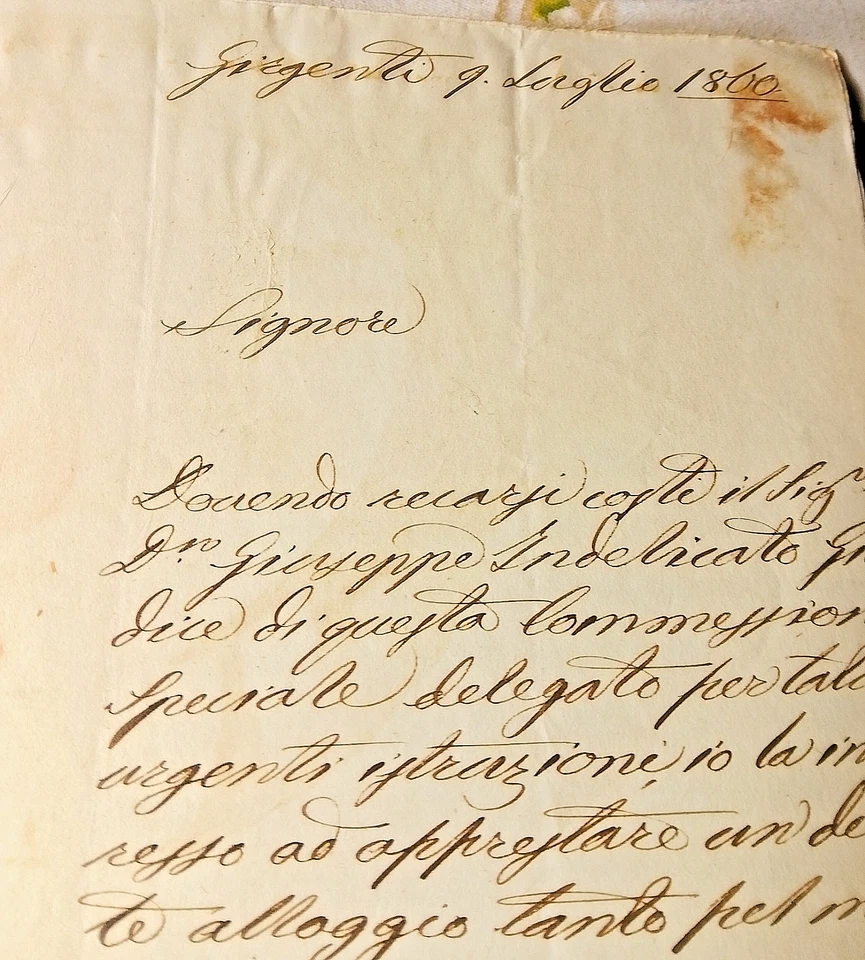 Girgenti 9. Luglio 1860
Signore
Dovendo recarsi costì il Sigr
Dn. Giuseppe Indelicato Giu
dice di questa Commession
Speciale delegato per talu
urgenti istruzioni, io la in
resso ad apprestare un de
te alloggio tanto pel m